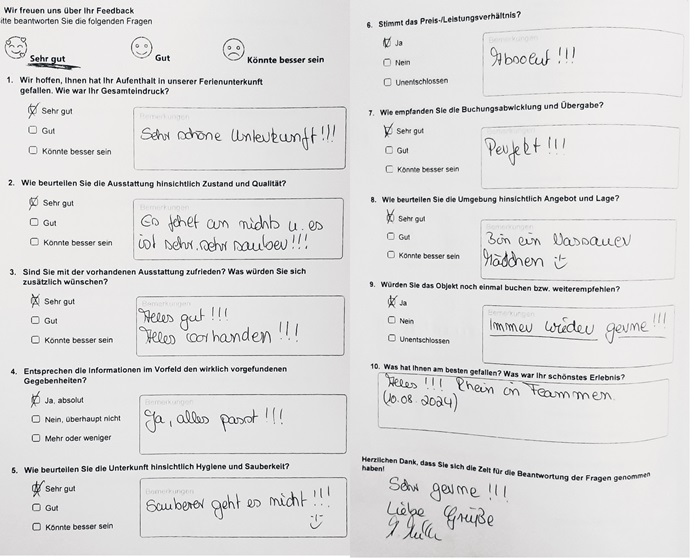 Wir freuen uns über Ihr Feedback
itte beantworten Sie die folgenden Fragen
Sehr gut
Gut
Könnte besser sein
1. Wir hoffen, Ihnen hat Ihr Aufenthalt in unserer Ferienunterkunft
gefallen. Wie war Ihr Gesamteindruck?
Sehr gut
Gut
Könnte besser sein
Bemerkungen
Sehr schöne Unterkunft!!!
2. Wie beurteilen Sie die Ausstattung hinsichtlich Zustand und Qualität?
Sehr gut
Gut
Könnte besser sein
Bemerkungen
Es fehlt an nichts u. es
ist sehr, sehr sauber!!!
3. Sind Sie mit der vorhandenen Ausstattung zufrieden? Was würden Sie sich
zusätzlich wünschen?
Sehr gut
Gut
Könnte besser sein
Bemerkungen
Alles gut!!!
Alles vorhanden!!!
4. Entsprechen die Informationen im Vorfeld den wirklich vorgefundenen
Gegebenheiten?
Ja, absolut
Nein, überhaupt nicht
Mehr oder weniger
Bemerkungen
Ja, alles passt!!!
5. Wie beurteilen Sie die Unterkunft hinsichtlich Hygiene und Sauberkeit?
Sehr gut
Gut
Könnte besser sein
Bemerkungen
Sauberer geht es nicht!!!
6. Stimmt das Preis-/Leistungsverhältnis?
Ja
Nein
Unentschlossen
Bemerkungen
Absolut!!!
7. Wie empfanden Sie die Buchungsabwicklung und Übergabe?
Sehr gut
Gut
Könnte besser sein
Bemerkungen
Perfekt!!!
8. Wie beurteilen Sie die Umgebung hinsichtlich Angebot und Lage?
Sehr gut
Gut
Könnte besser sein
Bemerkungen
Bin ein Nassauer
Mädchen
9. Würden Sie das Objekt noch einmal buchen bzw. weiterempfehlen?
Ja
Nein
Unentschlossen
Bemerkungen
Immer wieder gerne!!!
10. Was hat Ihnen am besten gefallen? Was war Ihr schönstes Erlebnis?
Alles!!! Rhein in Flammen
(10.08.2024)
Herzlichen Dank, dass Sie sich die Zeit für die Beantwortung der Fragen genommen
haben!
Sehr gerne!!!
Liebe Grüße